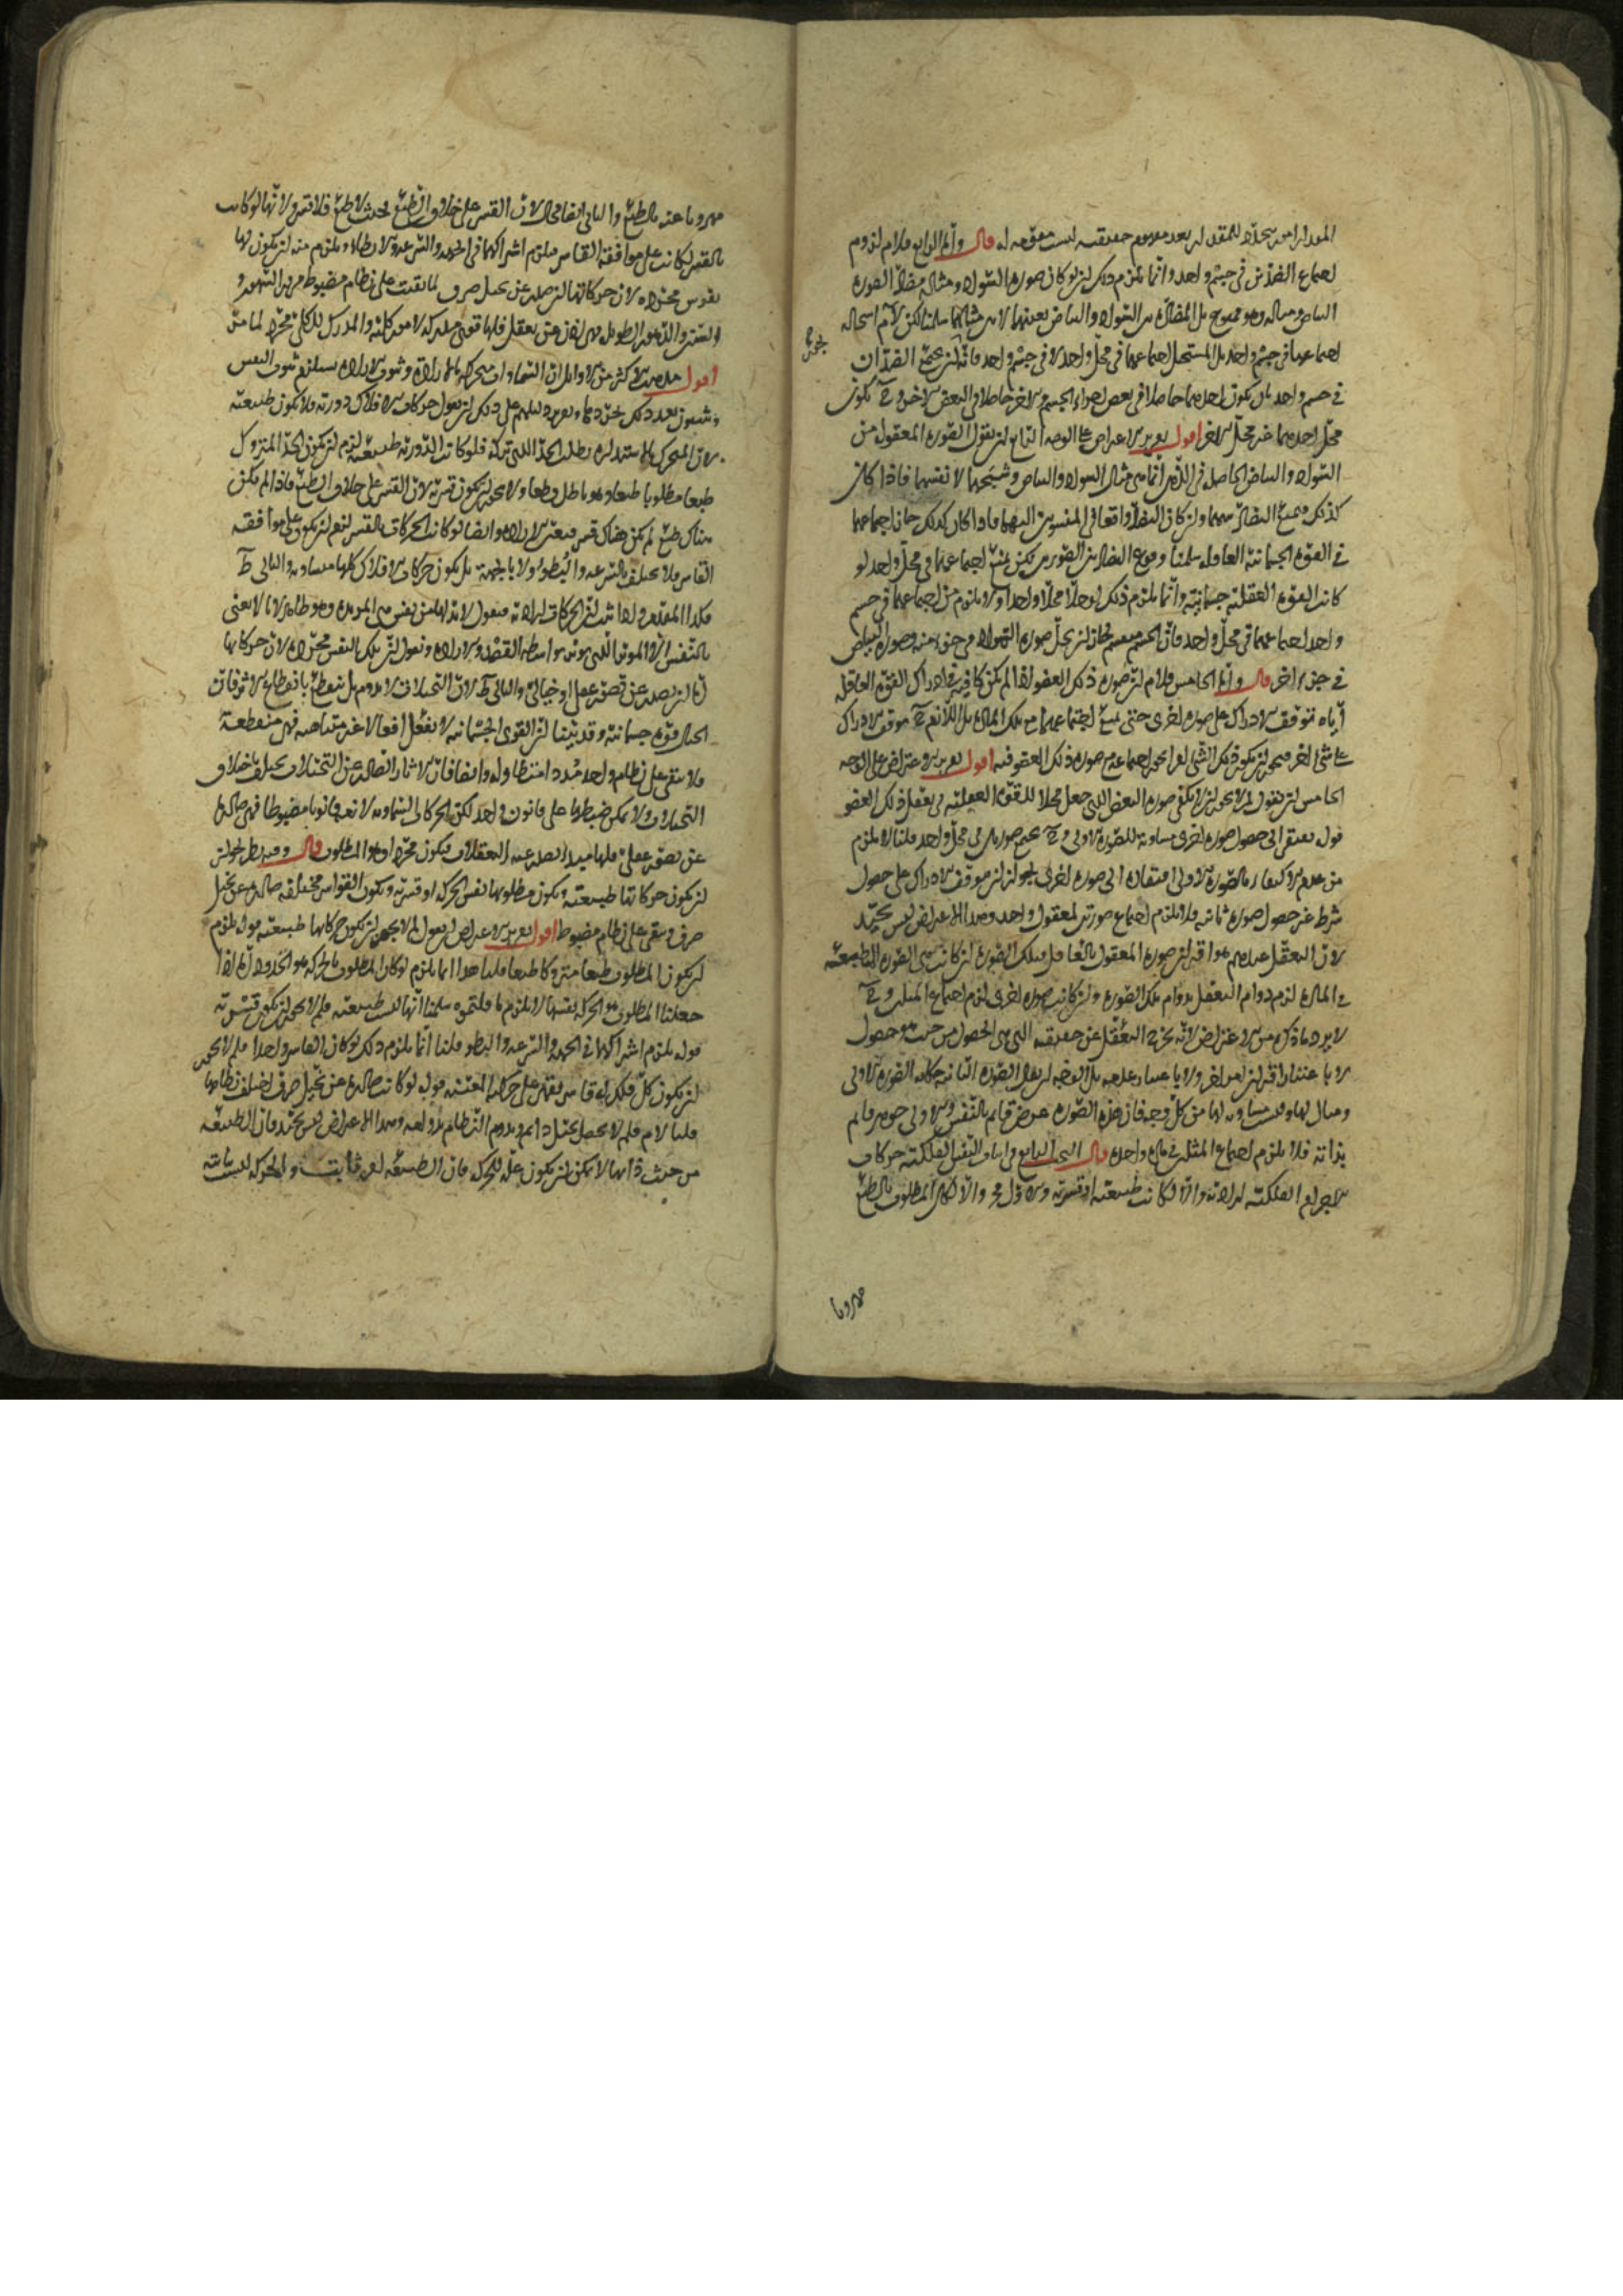 لامور متجددة للمتقدم اى بعد معدوم حقيقته ليست متقومة له قال واما الرابع فلا نم لزوم
اجتماع الضدين فى جسم واحد وانما يلزم ذلك لو كان صورة السواد ومثاله مضادا لصورة
البياض ومثاله وهو ممنوع بل المضادة بين السواد والبياض بعينهما لا بين مثاليهما سلمنا لكن لا نم استحالة
اجتماعهما فى جسم واحد بل المستحيل اجتماعهما فى محل واحد لا فى جسم واحد فانه يجوز ان يجتمع الضدان
فى جسم واحد بان يكون احدهما حاصلا فى بعض اجزاء الجسم والاخر حاصلا فى البعض الاخر وح يكون
محل احدهما غير محل الاخر اقول تقرير الاعتراض على الوجه الرابع ان نقول الصورة المعقولة من
السواد والبياض الحاصلة فى الذهن انما هى مثال السواد والبياض وشبحهما لا نفسهما فاذا كان
كذلك فيمتنع التضاد بينهما وان كان التضاد واقعا فى المنسوبين اليهما فاذا كان كذلك جاز اجتماعهما
فى القوة الجسمانية العاقلة سلمنا وقوع التضاد بين الصورتين لكن يمتنع اجتماعهما فى محل واحد لو
كانت القوة العقلية جسمانية وانما يلزم ذلك لو حلا محلا واحدا ولا يلزم من اجتماعهما فى جسم
واحد اجتماعهما فى محل واحد فان الجسم منقسم فجاز ان يحل صورة السواد فى جزء منه وصورة البياض
فى جزء اخر قال واما الخامس فلا نم ان صورة ذلك العضو اذا لم يكن كافية فى ادراك القوة العاقلة
اياه تتوقف الادراك على صورة اخرى حتى يمتنع اجتماعهما مع تلك المادة بل اللازم ح توقف الادراك
على شئ اخر فيجوز ان يكون ذلك الشئ امرا يجوز اجتماعه مع صورة ذلك العضو فيه اقول تقرير الاعتراض على الوجه
الخامس ان نقول لم لا يجوز ان لا يكفى صورة البعض الذى جعل محلا للقوة العقلية فى تعقل ذلك العضو
قوله يفتقر الى حصول صورة اخرى مساوية للصورة الاولى وح يجتمع صورتان فى محل واحد قلنا لا يلزم
من عدم الاكتفاء بالصورة الاولى افتقاره الى صورة اخرى لجواز ان توقف الادراك على حصول
شرط غير حصول صورة ثانية فلا يلزم اجتماع صورتين لمعقول واحد وهذا الاعتراض ليس بجيد
لان التعقل عندهم هو اقتران صورة المعقول بالعاقل فتلك الصورة ان كانت هى الصورة الطبيعية
فى المادة لزم دوام التعقل بدوام تلك الصورة وان كانت صورة اخرى لزم اجتماع المثلين وح
لا يرد ما ذكره من الاعتراض لانه يخرج التعقل عن حقيقته التى هى الحصول من حيث هو حصول
بذاته فلا يلزم اجتماع المثلين فى مادة واحدة قال البحث السابع فى اثبات النفس الفلكية حركات
الاجرام الفلكية ارادية والا لكانت طبيعية او قسرية والاول مح والا لكان المطلوب بالطبع
مهروبا
بجوز
مهروبا عنه بالطبع والثانى ايضا محال لان القسر على خلاف الطبع فحيث لا طبع فلا قسر ولانها لو كانت
بالقسر لكانت على موافقة القاسر فيلزم اشتراكها فى الجهة والسرعة والبطء ويلزم منه ان يكون لها
نفوس مجردة لان حركاتها لو صدرت عن تخيل صرف لما بقيت على نظام مضبوط من الشهور و
السنين والدهور الطويلة فهى اذن عن تعقل فلها قوى مدركة لامور كلية والمدرك للكلى مجرد لما مر
اقول مذهب اكثر من الاوائل ان السماوات متحركة بالارادة وثبوت الارادة يستلزم ثبوت النفس
ويثبتون بعد ذلك تجردها وتقرير دليلهم على ذلك ان نقول حركات الافلاك دورية فلا يكون طبيعية
لان المتحرك بالاستدارة يطلب الحد الذى تركه فلو كانت الدورية طبيعية لزم ان يكون الحد المتروك
طبعا مطلوبا طبعا وهو باطل قطعا ولا يجوز ان يكون قسرية لان القسر على خلاف الطبع فاذا لم يكن
هناك طبع لم يكن هناك قسر فتعين الارادة وايضا لو كانت الحركات بالقسر لزم ان يكون على موافقة
القاسر فلا يختلف بالسرعة والبطوء ولا بالجهة بل يكون حركات الافلاك كلها متساوية والتالى ظ
فكذا المقدم واذا ثبت ان الحركات ارادية فنقول لا بد لها من نفس هى المريدة وهو ظاهر لانا لا نعنى
بالنفس الا المؤثر الذى يؤثر بواسطة القصد والارادة ونقول ان تلك النفس مجردة لان حركاتها
اما ان يصدر عن تصور عقلى او خيالى والتالى ظ لان التخيلات لا تدوم بل تنقطع بانقطاع الاثر فان
الخيال قوة جسمانية وقد بينا ان القوى الجسمانية لا تفعل افعالا غير متناهية فهى منقطعة
فلا تبقى على نظام واحد مددا متطاولة وايضا فان الاثار الصادرة عن التخيلات يختلف باختلاف
التخيلات ولا يمكن ضبطها على قانون واحد لكن الحركات السماوية لا تعدو قانونا مضبوطا فهى صادرة
عن تصور عقلى فلها مبدا يصدر عنه التعقلات فيكون مجردا وهو المطلوب قال وفيه نظر لجواز
ان يكون حركاتها طبيعية ويكون مطلوبها نفس الحركة او قسرية ويكون القواسر مختلفة صادرة عن تخيل
صرف ويبقى على نظام مضبوط اقول تقرير الاعتراض ان نقول لم لا يجوز ان يكون حركاتها طبيعية قوله يلزم
ان يكون المطلوب طبعا متروكا طبعا قلنا هذا انما يلزم لو كان المطلوب بالحركة هو الحدود اما اذا
جعلنا المطلوب هو الحركة نفسها لا يلزم ما قلتموه سلمنا انها ليست طبيعية فلم لا يجوز ان يكون قسرية
قوله يلزم اشتراكها فى الجهة والسرعة والبطو قلنا انما يلزم ذلك لو كان القاسر واحدا فلم لا يجوز
ان يكون لكل فلك قاسر يقهره على حركته المعينة قوله لو كانت صادرة عن تخيل صرف اختلف نظامها
قلنا لا نم فلم لا يحصل تخيل دائم ويدوم النظام بدوامه وهذا الاعتراض ليس بجيد فان الطبيعة
من حيث ذاتها لا يمكن ان يكون علة للحركة فان الطبيعة امر ثابت والحركة ليست ثابتة